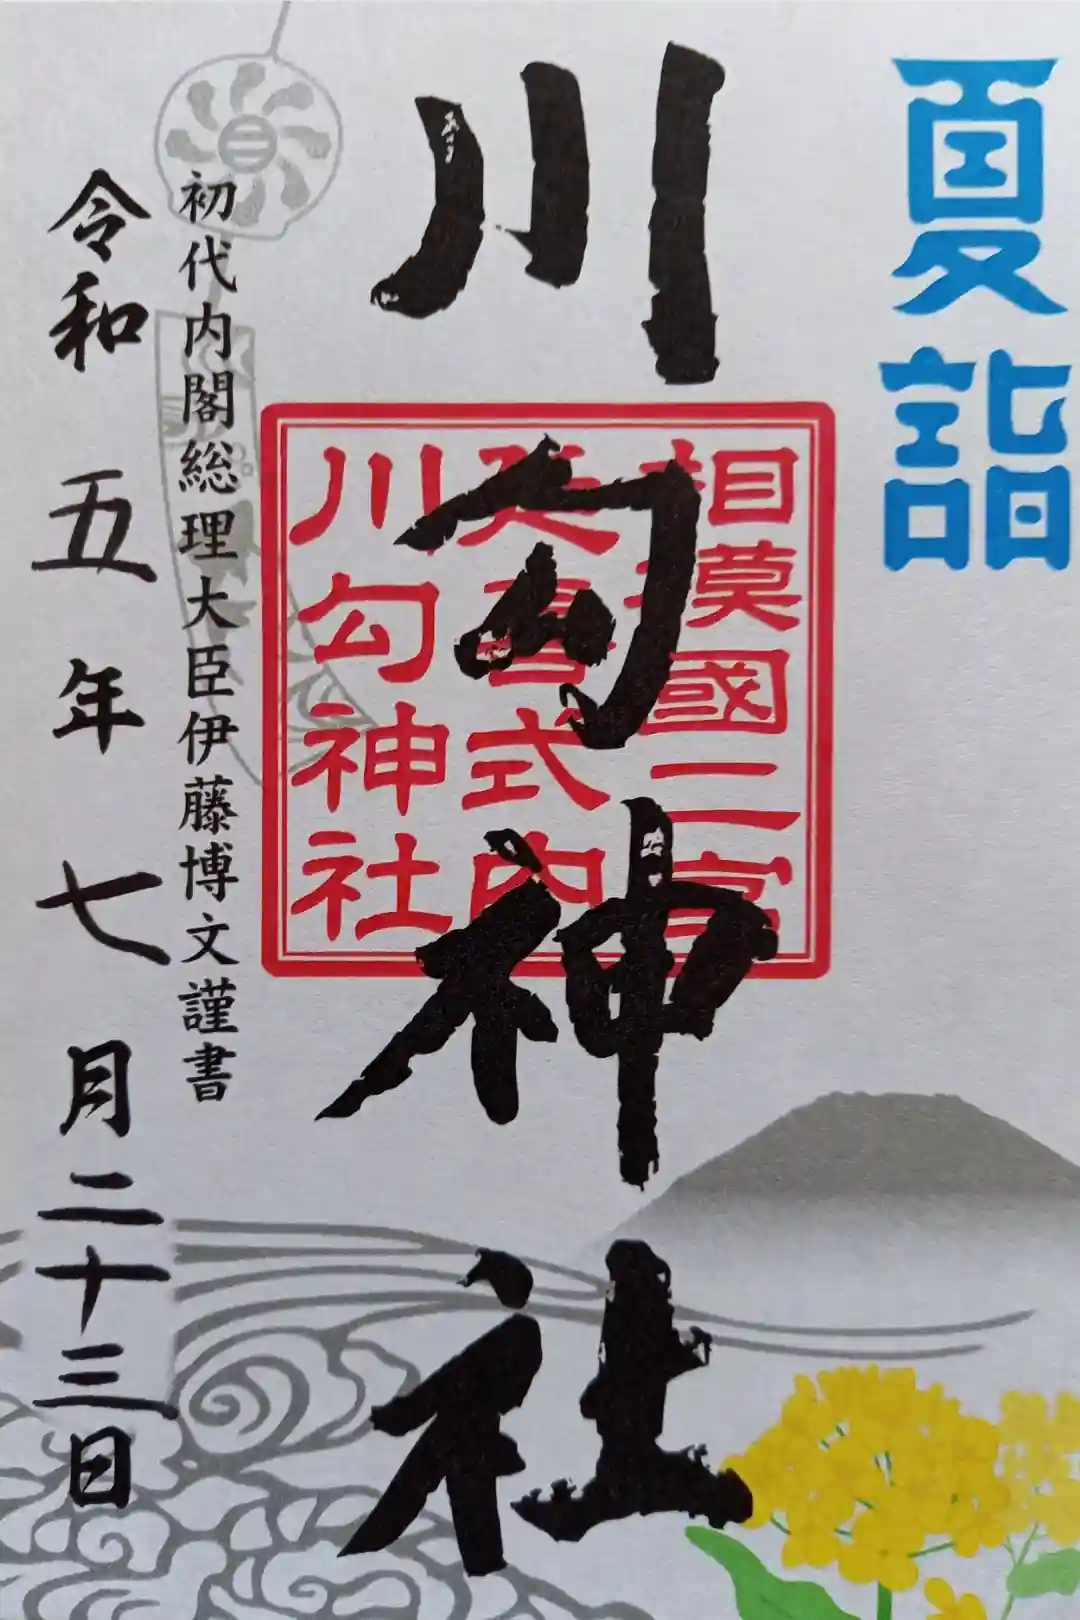 夏詣
川勾神社
相模國二宮
延喜式内
川勾神社
初代内閣総理大臣伊藤博文謹書
令和五年七月二十三日